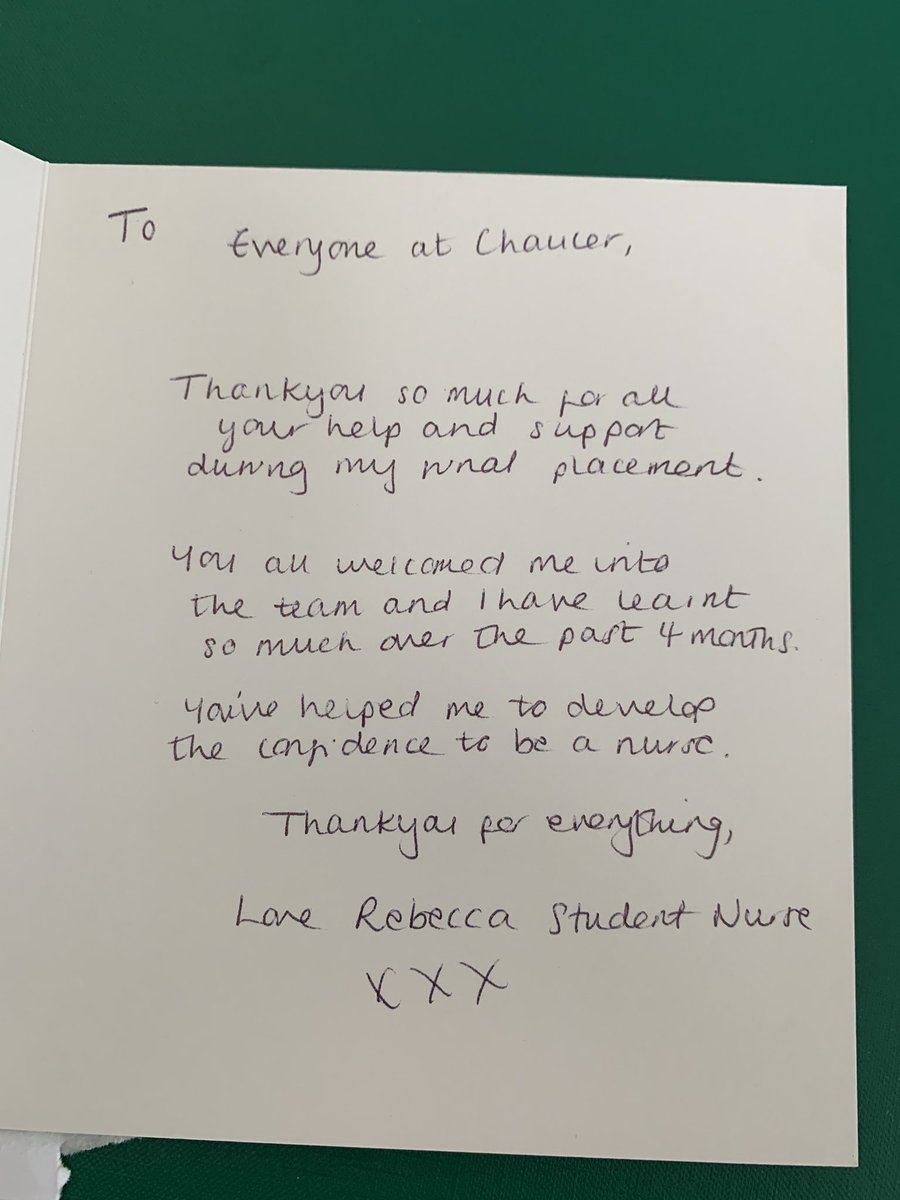 To Everyone at Chaucer,
Thankyou so much for all
your help and support
during my final placement.
You all welcomed me into
the team and I have learnt
so much over the past 4 months.
You've helped me to develop
the confidence to be a nurse.
Thankyou for everything,
Love Rebecca Student Nurse
XXX